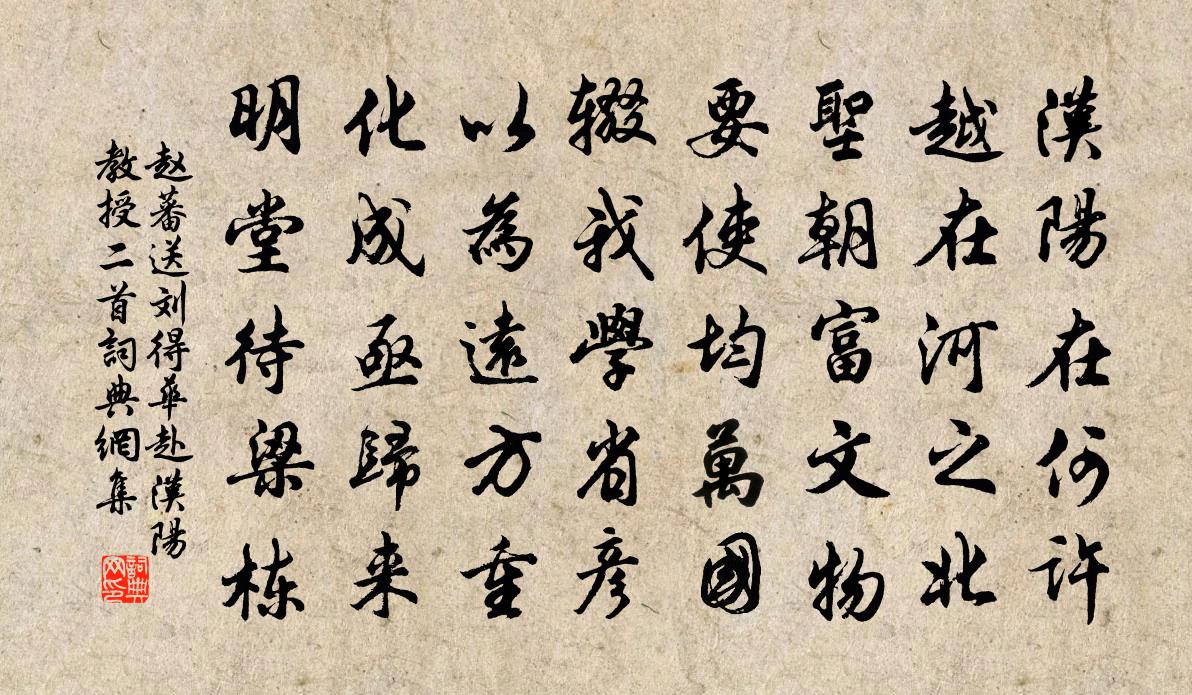 漢陽在何許
越在河之北
聖朝富文物
要使均萬國
辍我學省彦
以為遠方重
化成亟歸来
明堂待梁栋
赵蕃送刘得華赴漢陽
教授二首詞典網集
詞典网印